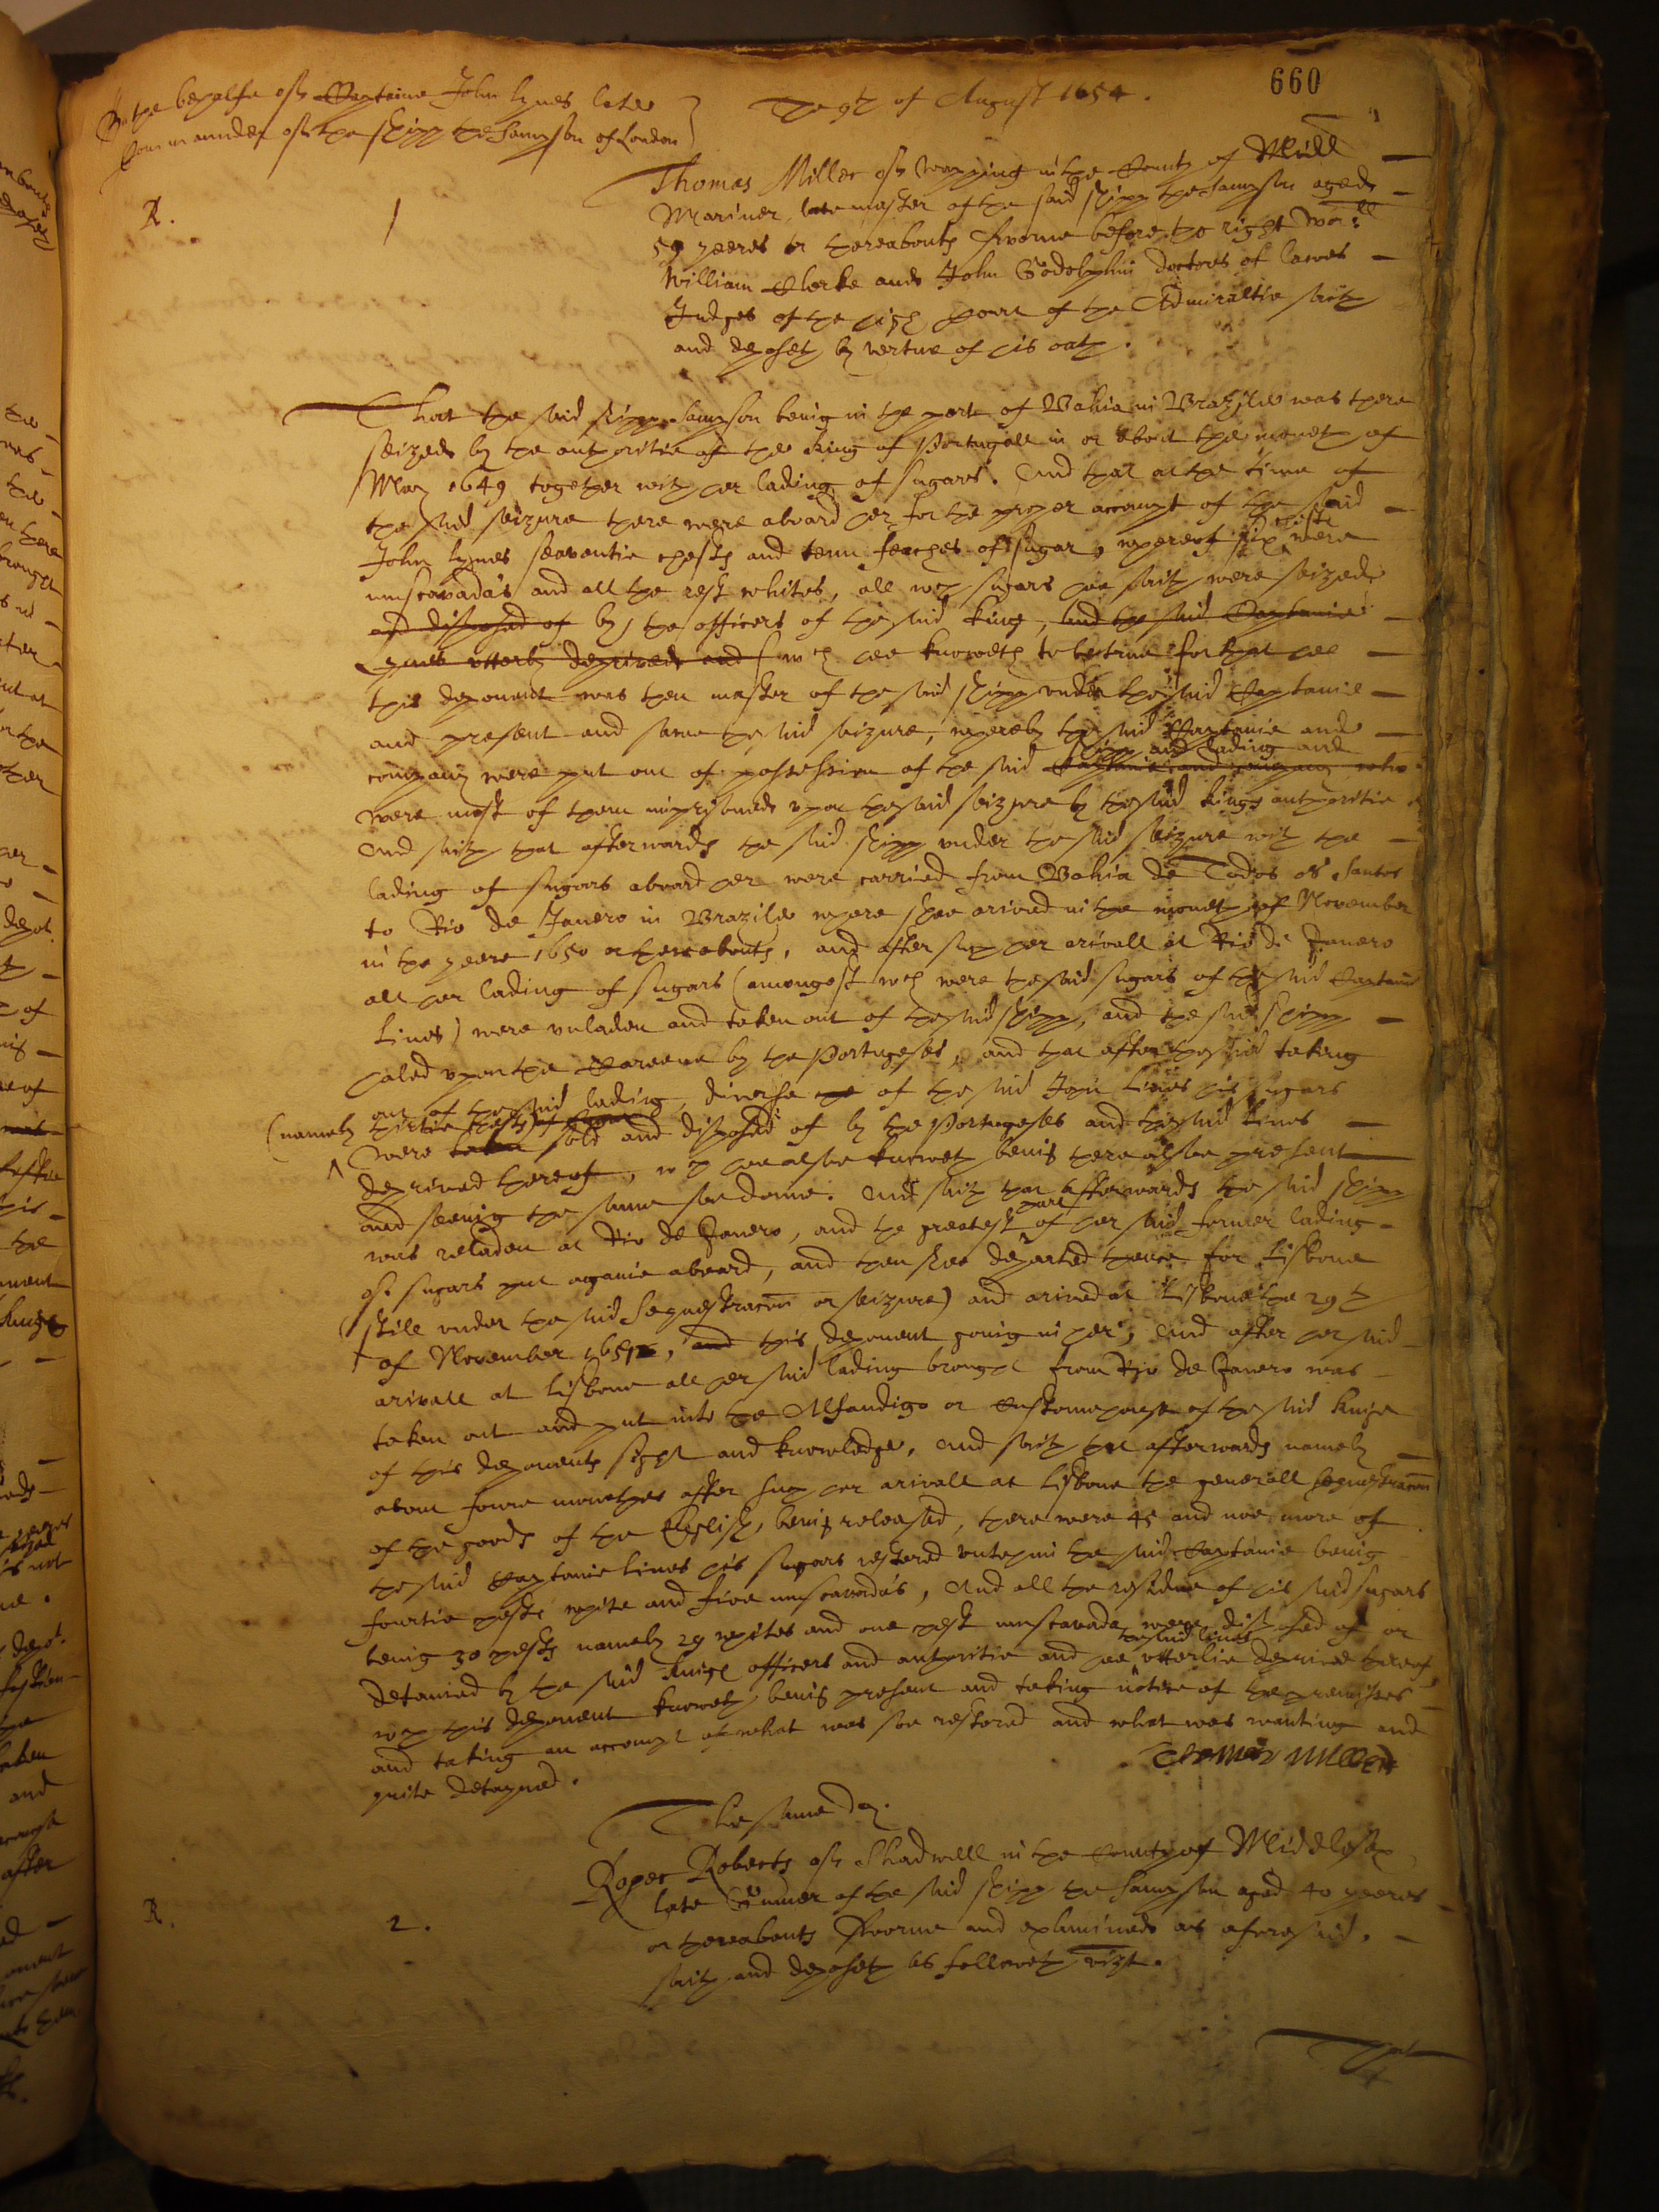 660
In the behalfe of Captaine John Lynes late
Commaunder of the shipp the Sampson of London
The 9th of August 1654.
R. 1
Thomas Miller of Wapping in the County of Midd
Mariner, late master of the said shipp the Sampson aged
59 yeeres or thereabouts sworne before the right Worll
William Clerke and John Godolphin doctors of lawes
Judges of the high Court of the Admiraltie saith
and deposeth by vertue of his oath.
That the said shipp Sampson being in the port of Bahia in Brazile was there
seized by the authoritie of the King of Portugall in or about the moneth of
May 1649 together with her lading of sugars. And that at the time of
the said seizure there were aboard her for the proper accompt of the said
John Lynes seaventie chests and tenn feaches of sugar, whereof six chests were
muscavada's and all the rest whites, all wch sugars hee saith were seized
and disposed of by the officers of the said king, and the said Captaine
Lynes utterly deprived and (wch hee knoweth to be true for that hee
this deponent was then master of the said shipp under the said Captaine
and present and sawe the said seizure, whereby the said Captaine and
company were put out of possession of the said Captaine and company who shipp and lading and
were most of them imprisoned upon the said seizure by the said kings authoritie
And saith that afterwards the said shipp under the said seizure with the
lading of sugars aboard her were carried from Bahia de Todos os Santos
to Rio de Janero in Brazile where shee arived in the moneth of November
in the yeere 1650 or thereabouts, and after such her arivall at Rio de Janero
all her lading of sugars (amongest wch were the said sugars of the said Captaine
Lines) were unladen and taken out of the said shipp, and the said shipp
haled upon the Careene by the Portugeses, and that after the said taking
out of the said lading, diverse of the said John Lines his sugars
(namely thirtie chests
were taken sold and disposed of by the Portugeses and the said Lines
deprived thereof, wch hee alsoe knoweth being there alsoe present
and seeing the same soe donne. And saith that afterwards the said shipp
was reladen at Rio de Janero, and the greatest part of her said former lading
of sugars put againe aboard, and then shee departed thence for Lisbone
(still under the said sequestracon or seizure) and arived at Lisbone the 29th
of November 1651, and this deponent going in her, And after her said
arivall at Lisbone all her said lading brought from Rio de Janero was
taken out and put into the Alfandigo or Customehouse of the said Kinge
of this deponents sight and knowledge, And saith that afterwards namely
about foure monethes after such her arivall at Lisbone the generall sequestracon
of the goods of the English, being released, there were 45 and noe more of
the said Captaine Lines his sugars restored unto him the said Captaine being
fourtie chests white and five muscavada's, And all the residue of his said sugars
being 30 chests namely 29 whites and one chest muscavada were disposed of or
detained by the said Kings officers and authoritie and hee the said Lines utterlie deprived thereof,
wch this deponent knoweth, being present and taking notice of the premisses
and taking an accompt of what was soe restored and what was wanting and
quite detayned.
Thomas Miller
The same day.
R. 2.
Roger Roberts of Shadwell in the County of Middlesex
late Gunner of the said shipp the Sampson aged 40 yeeres
or thereabouts sworne and examined as aforesaid,
saith and deposeth as followeth vizt.
That